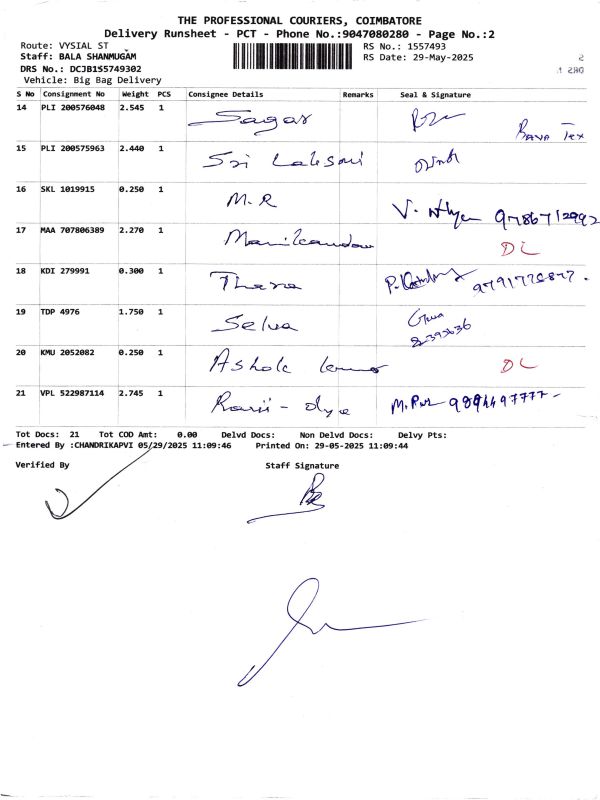 THE PROFESSIONAL COURIERS, COIMBATORE
Delivery Runsheet - PCT - Phone No.:9047080280 - Page No.:2
Route: VYSIAL ST RS No.: 1557493
Staff: BALA SHANMUGAM RS Date: 29-May-2025
DRS No.: DCJB155749302
Vehicle: Big Bag Delivery
S No Consignment No Weight PCS Consignee Details Remarks Seal & Signature
14 PLI 200576048 2.545 1 Sagar Bava Tex
15 PLI 200575963 2.440 1 Sri
16 SKL 1019915 0.250 1 M.R V. 9786712992
17 MAA 707806389 2.270 1 Manikandan DL
18 KDI 279991 0.300 1 Thara
19 TDP 4976 1.750 1 Selva
20 KMU 2052082 0.250 1 Ashok DL
21 VPL 522987114 2.745 1 9894497777
Tot Docs: 21 Tot COD Amt: 0.00 Delvd Docs: Non Delvd Docs: Delvy Pts:
Entered By :CHANDRIKAPVI 05/29/2025 11:09:46 Printed On: 29-05-2025 11:09:44
Verified By Staff Signature